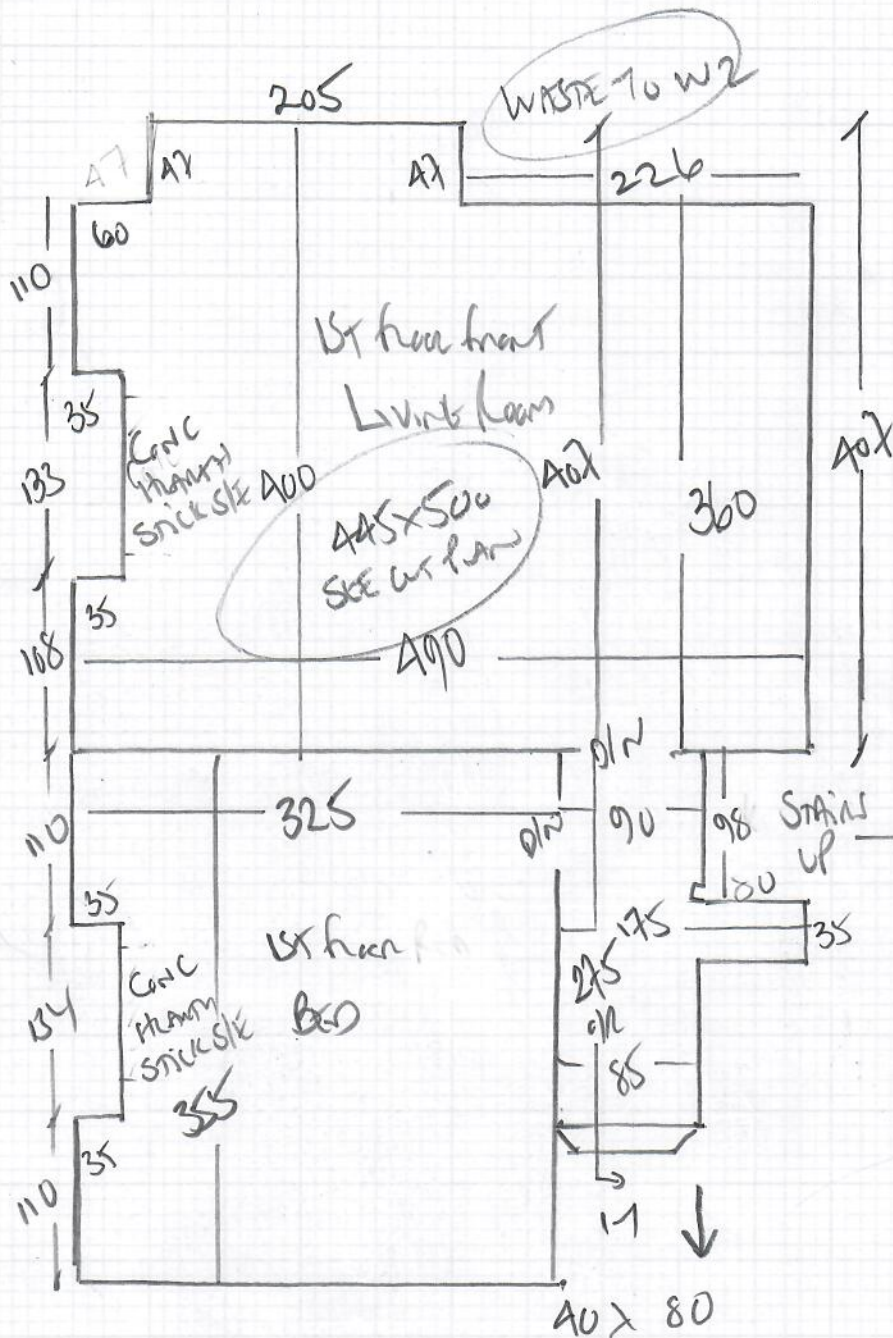 WASTE TO W2
205
47
47
47
226
60
110
1ST floor front
Living Room
35
CONC
HEARTH
STICK S/E
133
400
407
407
360
445x500
SEE CUT PLAN
35
108
490
D/N
110
325
D/N
90
98
STAIRS
UP
80
35
175
35
1ST floor
BED
275
CONC
HEARTH
STICK S/E
134
85
355
35
110
40 x 80